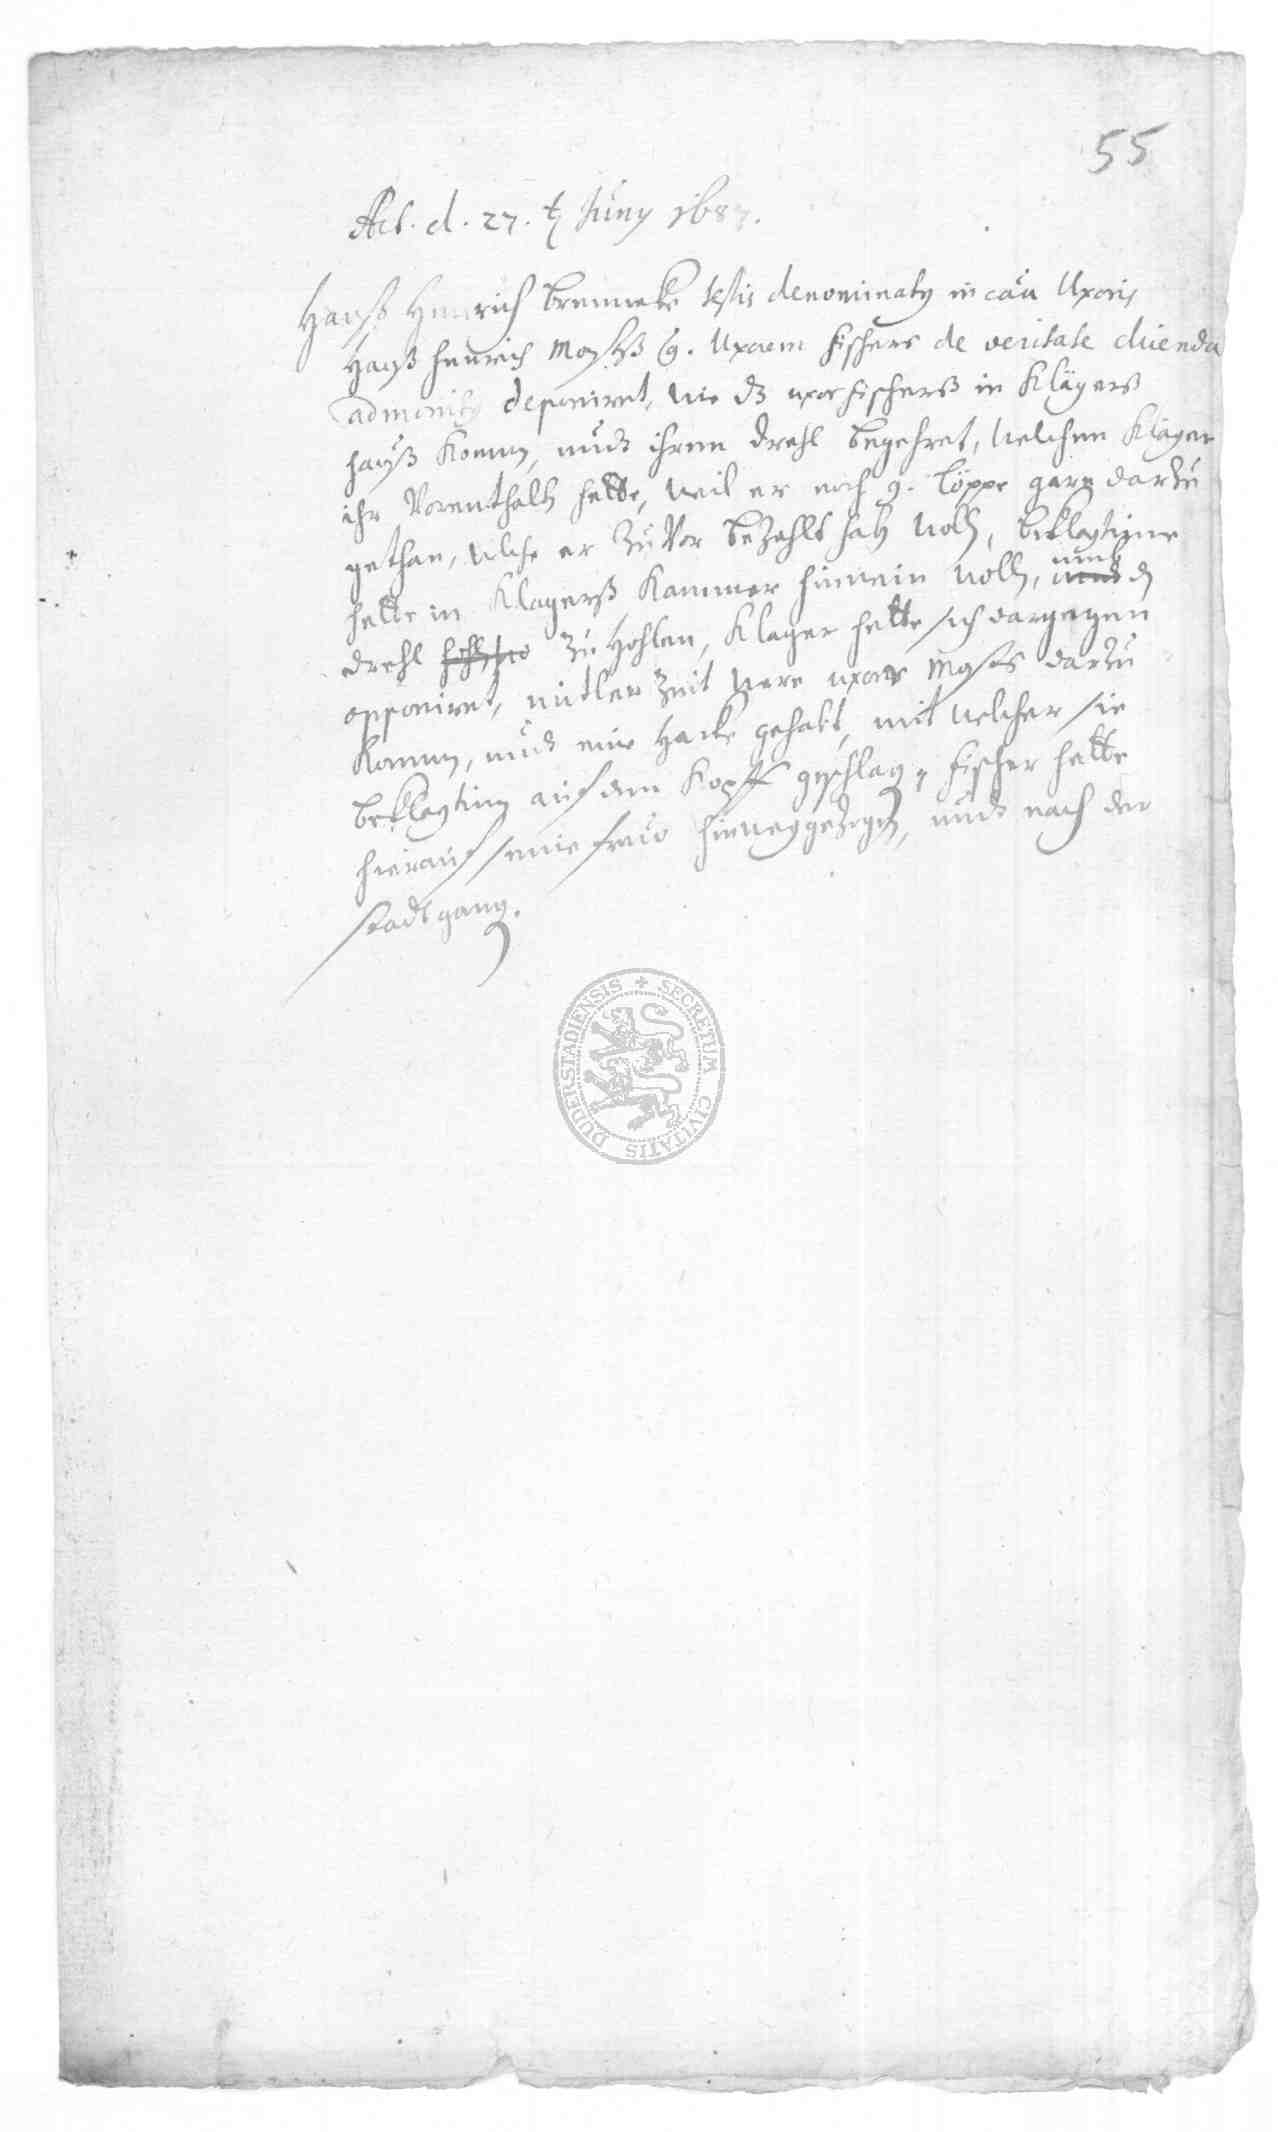 55
Act. d. 27. t Juny 1687.
Hanß Henrich Brenneke testis denominatq in caũa Uxoris
Hanß Henrich Uxorem Fischers de veritate dicenda
admonitq deponiret, wie dz uxor Fischerß in Klägerß
Hauß kommen, undt ihren Drehl begehret, welchen Kläger
ihr Vorenthalt hette, weil er noch 9. Löppe garn darzu
gethan, welche er zu Vor bezahlt hab wolle, Beklagtinne
hette in Klagerß Kammer hinnein wollen, umb d
Drehl zu Hohlen, Klager hette sich dargegen
opponiret, mitler Zeit were uxor darzu
kommen, undt eine Harke gehabt, mit welcher sie
Beklagtin auf den Kopff geschlagen, Fischer hette
hierauf seine fraw hinweggezogen, undt nach der
stadt gangen.
DUDERSTADIENSIS + SECRETUM CIVITATIS